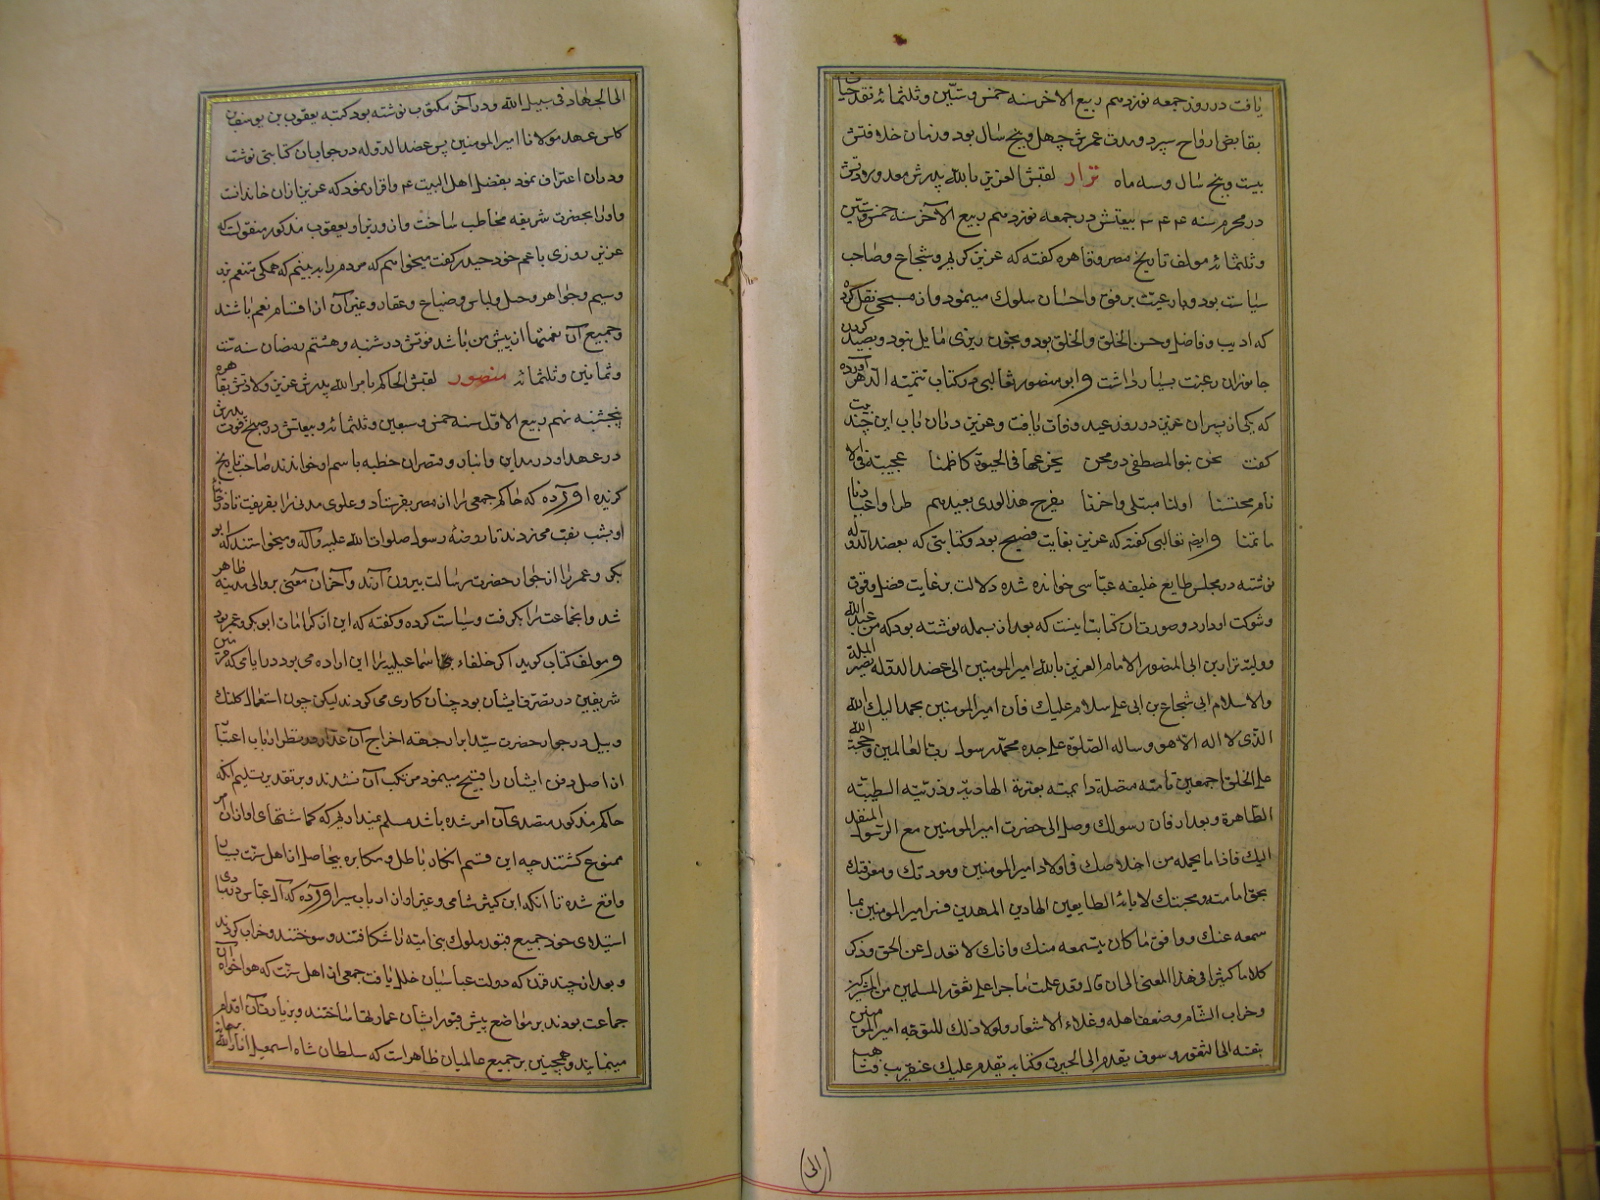 یافت در روز جمعه نوزدهم ربیع الاخر سنه خمس و ستین و ثلثمائه نقد حیات
بقابض ارواح سپرد و مدت عمرش چهل و پنج سال بود و زمان خلافتش
بیست و پنج سال و سه ماه نزار لقبش العزیز بالله پدرش معد و ورودش
در محرم سنه ۳۴۴ بیعتش در جمعه نوزدهم ربیع الآخر سنه خمس و ستین
و ثلثمائه مولف تاریخ مصر و قاهره کفته که عزیز کریم و شجاع و صاحب
سیاست بود و با رعیت برفق و احسان سلوک مینمود و از مسبحی نقل کرده
که ادیب و فاضل و حسن الخلق و الخلق بود و بخون ریزی مایل نبود و بصید کردن
جانوران رغبت بسیار داشت و ابو منصور ثعالبی در کتاب یتیمة الدهر آورده
که یکی از پسران عزیز در روز عید وفات یافت و عزیز در آن باب این چند بیت
کفت نحن بنو المصطفی ذو محن یجرعها فی الحیوة کاظمنا عجیبة فی الا
نام محنتنا اولنا مبتلی و اخرنا یفرح هذا الوری بعیدهم طرا و اعیادنا
ماتمنا و ایضا ثعالبی کفته که عزیز بغایت فصیح بود و کتابتی که بعضد الدوله
نوشته در مجلس طایع خلیفه عباسی خوانده شده دلالت بر غایت فضل و فوق
و شوکت او دارد و صورت آن کتابت اینست که بعد از بسمله نوشته بود که من عبد الله
و ولیه نزار بن ابی المنصور الامام العزیز بالله امیر المومنین الی عضد الدولة نصیر الملة
والاسلام ابی شجاع بن ابی علی سلام علیک فان امیر المومنین یحمد الیک الله
الذی لا اله الا هو و ساله الصلوة علی جده محمد رسول رب العالمین و حجة الله
علی الخلق اجمعین تامته متصلة دائمیة بعترته الهادیة و ذریته الطیبه
الطاهرة و بعد ار فان رسولک وصل الی حضرت امیر المومنین مع الرسول المنفذ
الیک فاذا ما یحمله من اخلاصک فی اولاد امیر المومنین و مودتک و معرفتک
بحق امامته و محبتک لابائه الطایعین الهادین المهدین فسر امیر المومنین بما
سمعه عنک و وافق ما کان یتسمعه منک و انک لا تعدل عن الحق و ذکر
کلاما کثیرا فی هذا المعنی الی ان قال و قد علمت ما جرا علی ثغور المسلمین من المشرکین
و خراب الشام و ضعف اهله و غلاء الاسعار و لولا ذلک للتوجه امیر المومنین
بنفسه الی الثغور و سوف یقدم الی الحیرت و کتابه یقدم علیک عنقریب فتاهب
(الی)
الی الجهاد فی سبیل الله و در آخر مکتوب نوشته بود کتبه یعقوب بن یوسف بن
کلس عهد مولانا امیر المومنین پس عضد الدوله در جواب آن کتابتی نوشت
و در آن اعتراف نمود بفضل اهل البیت ع و اقرار نمود که عزیز از آن خاندانست
و او را بحضرت شریفه مخاطب ساخت و از وزیر او یعقوب مذکور منقولست که
عزیز روزی با عم خود حیدر کفت میخواهم که مردم را به بینم که همکی متنعم بزر
و سیم و جواهر و خیل و لباس و ضیاع و عقار و غیر آن از اقسام نعم باشند
و جمیع آن نعمتها از پیش من باشد فوتش در شنبه و هشتم رمضان سنه ست
و ثمانین و ثلثمائه منصور لقبش الحاکم بامر الله پدرش عزیز ولادتش بقاهره
پنجشنبه نهم ربیع الاول سنه خمس و سبعین و ثلثمائه و بیعتش در صبح فوت پدرش
در عهد او در مداین و انبار و قصران خطبه باسم او خواندند صاحب تاریخ
کزیده آورده که حاکم جمعی را از مصر بفرستاد و علوی مدنی را بفریفت تا از خانه
او بشب نقب میزدند تا روضۀ رسول صلوات الله علیه و آله و میخواستند که ابو
بکر و عمر را از جوار حضرت رسالت بیرون آرند و آخر آن معنی بر والی مدینه ظاهر
شد و آنجماعت را بکرفت و سیاست کرده و کفته که این از کرامات ابو بکر و عمر بود
و مولف کتاب کوید اکر خلفاء اسماعیلیه را این اراده می بود در ایامی که حرمین
شریفین در تصرف ایشان بود چنان کاری می کردند لیکن چون استعمال کلنک
و بیل در جوار حضرت سید ابرار جهة اخراج آن در نظر ارباب اعتبار
از اصل دفن ایشان را قبیح مینمود مرتکب آن نشدند و بر تقدیر تسلیم آنکه
حاکم مذکور متصدی آن امر شده باشد مسلم نمیداریم که کماشتهای او از آن امر
ممنوع کشتند چه این قسم انکار باطل و مکابره بیحاصل از اهل سنت بسیار
واقع شده تا آنکه ابن کثیر شامی و غیر او از ارباب سیر آورده که آل عباس در مبادی
استیلای خود جمیع قبور ملوک بنی امیه را شکافتند و سوختند و خراب کردند
و بعد از چند قرن که دولت عباسیان خلل یافت جمعی از اهل سنت که هواخواه آن
جماعت بودند بر مواضع پیش قبور ایشان عمارتها ساختند و بزیارت آن اقدام
مینمایند و همچنین بر جمیع عالمیان ظاهر است که سلطان شاه اسمعیل انار الله برهانه